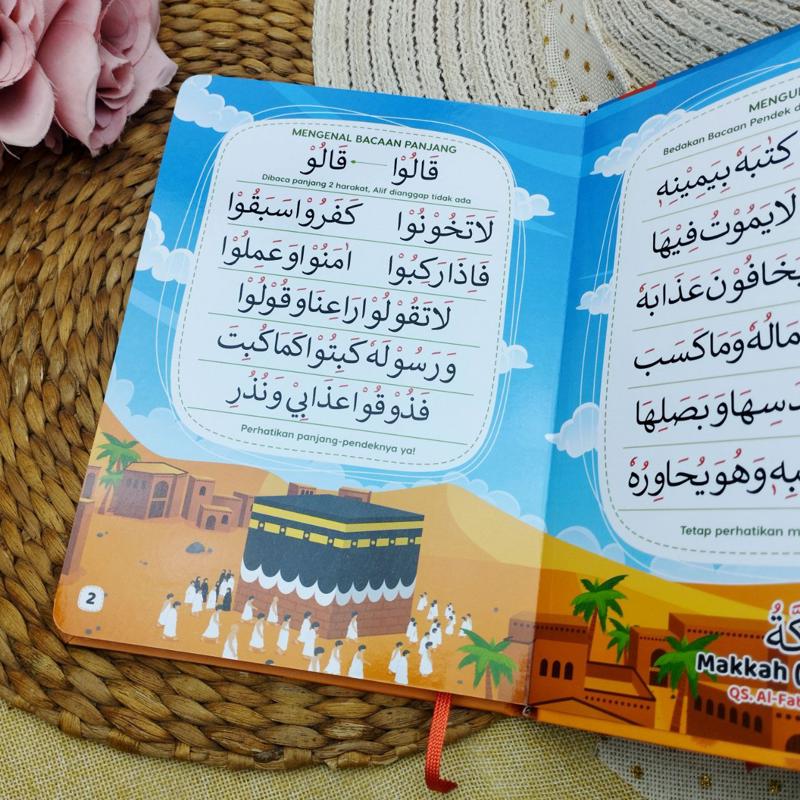 MENGENAL BACAAN PANJANG
قَالُوْا — قَالُوْ
Dibaca panjang 2 harakat, Alif dianggap tidak ada
لَاتَخُوْنُوْا كَفَرُوْاسَبَقُوْا
فَاذَارَكِبُوْا اٰمَنُوْاوَعَمِلُوْا
لَاتَقُوْلُوْارَاعِنَاوَقُوْلُوْا
وَرَسُوْلَهٗ كُبِتُوْاكَمَاكُبِتَ
فَذُوْقُوْاعَذَابِيْ وَنُذُرِ
Perhatikan panjang-pendeknya ya!
2
Bedakan Bacaan Pendek
كِتٰبَهٗ بِيَمِيْنِهٖ
لَايَمُوْتُ فِيْهَا
يَخَافُوْنَ عَذَابَهٗ
مَالُهٗ وَمَاكَسَبَ
وَبَصَلِهَا
وَهُوَيُحَاوِرُهٗ
Tetap perhatikan
Makkah
QS.